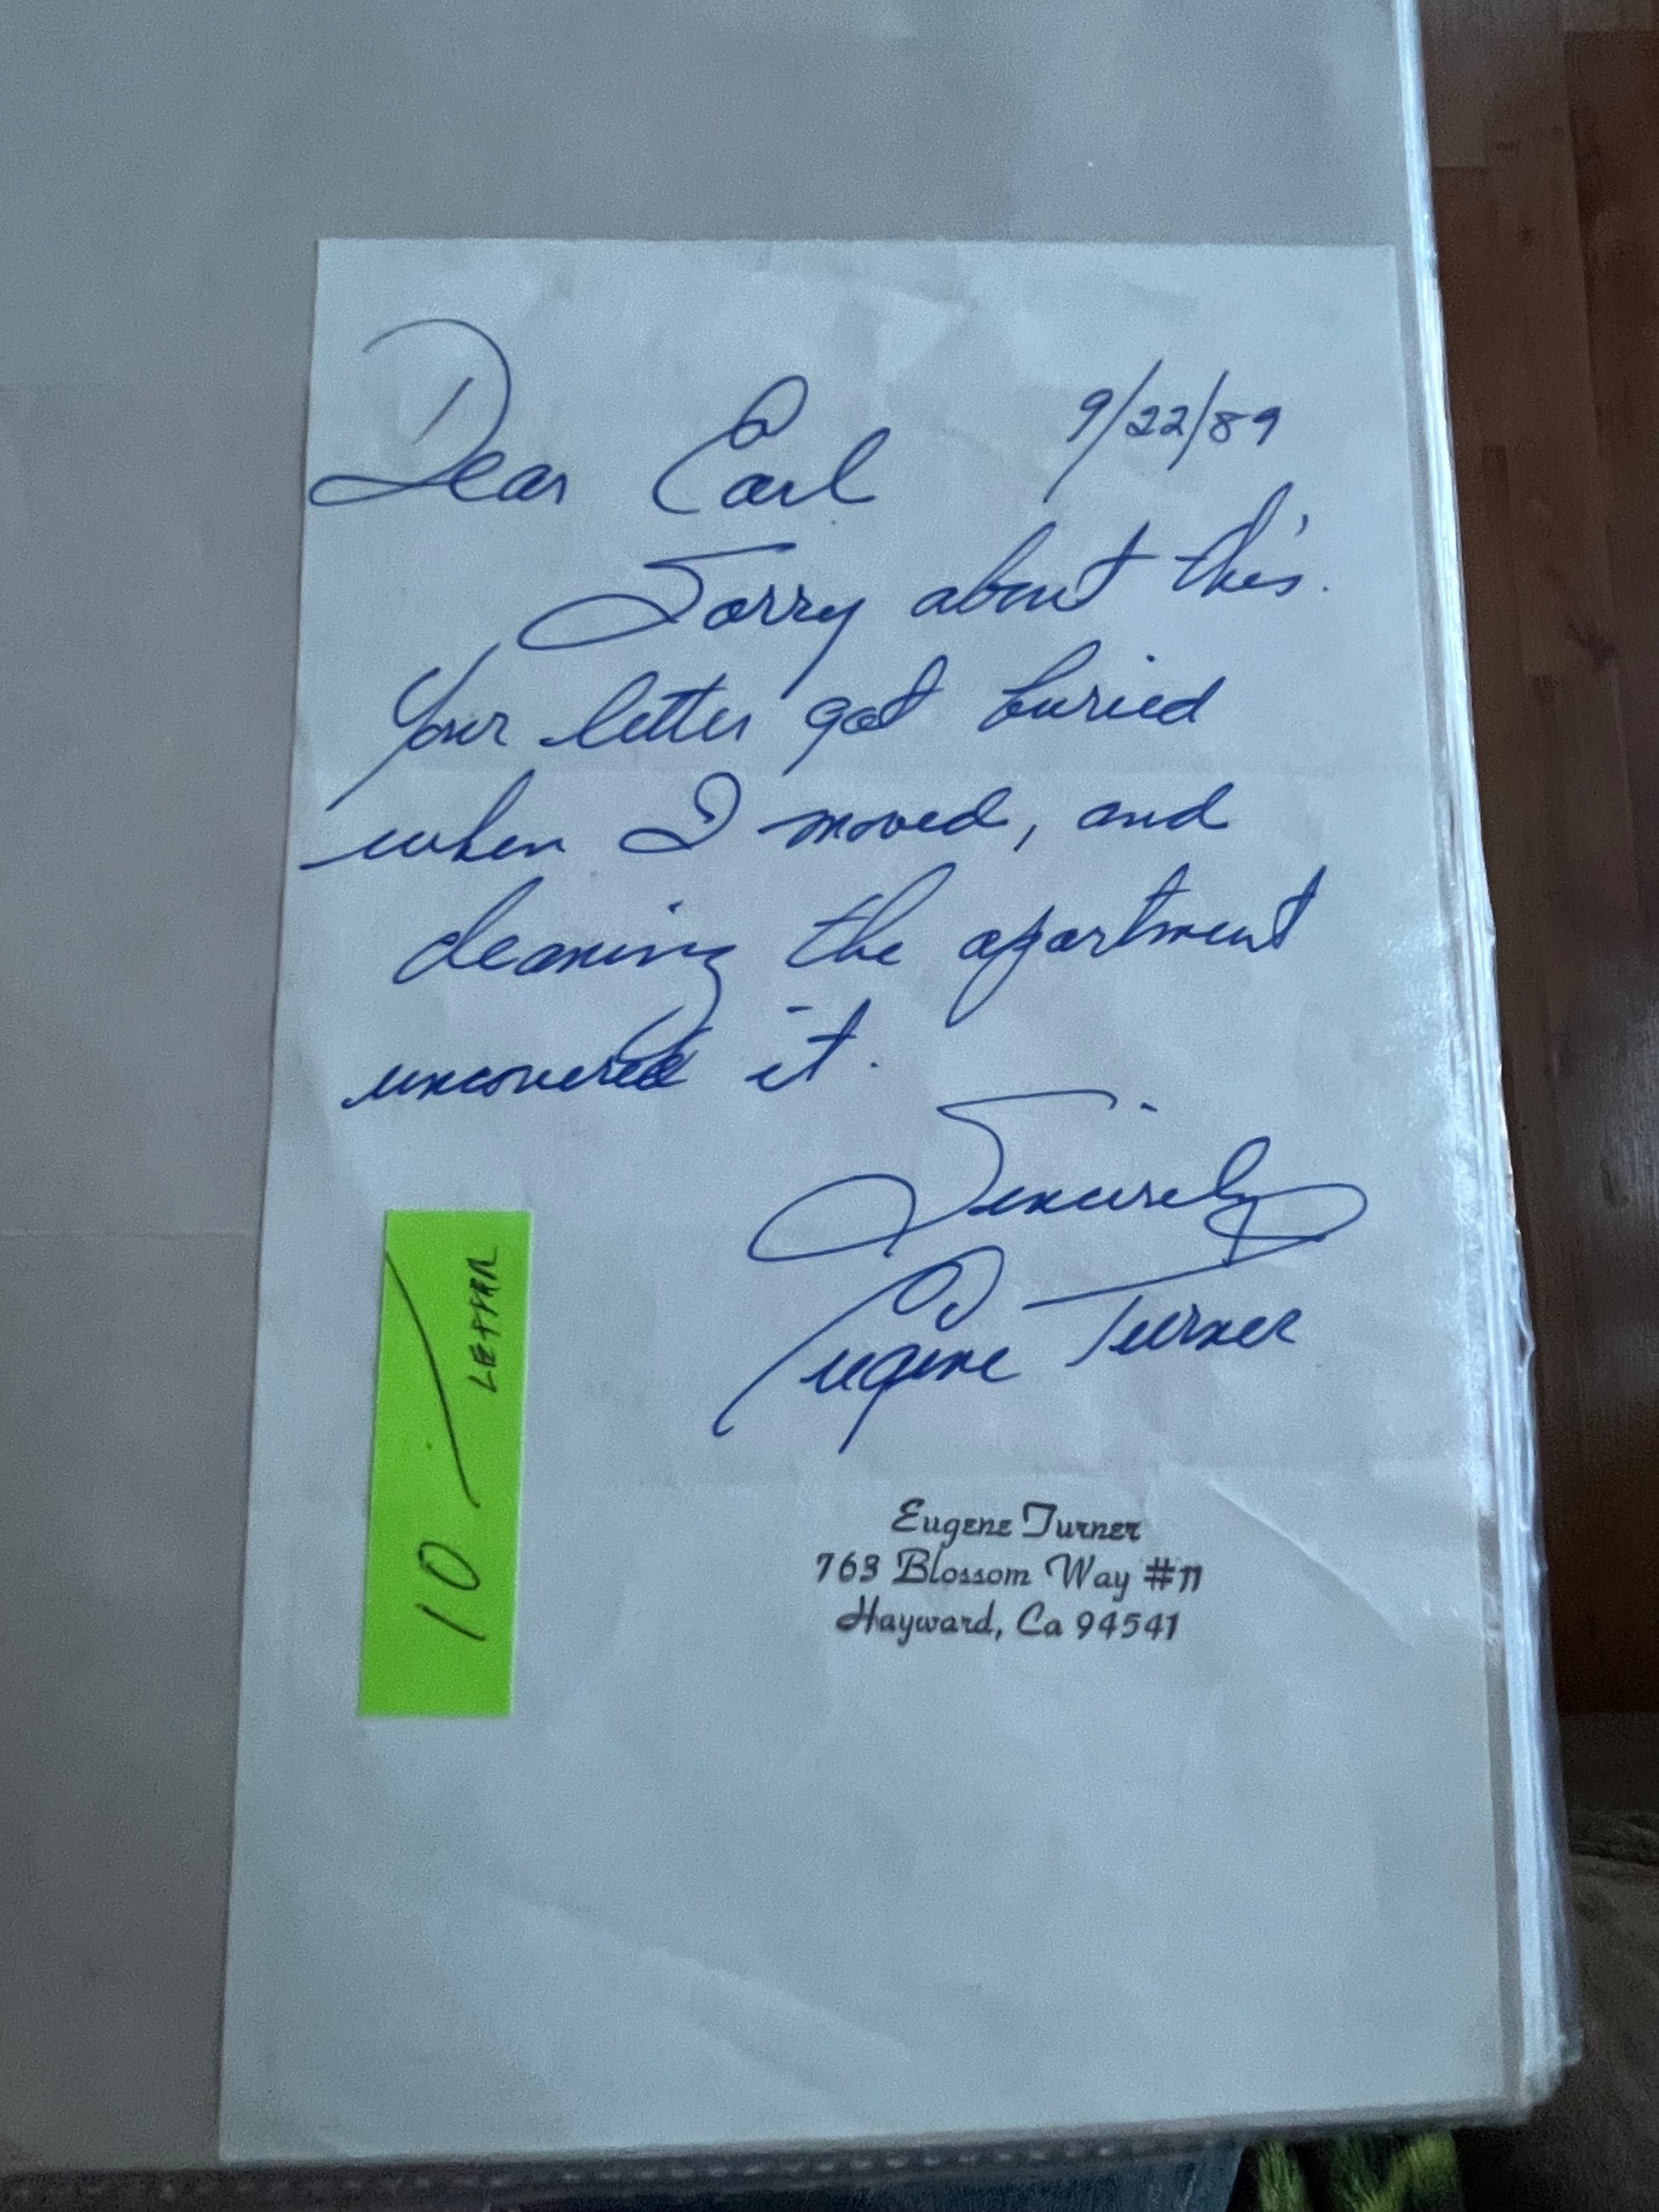 Dear Earl 9/22/89
Sorry about this.
Your letter got buried
when I moved, and
cleaning the apartment
uncovered it.
Sincerely
Eugene Turner
10 — LETTER
Eugene Turner
763 Blossom Way #11
Hayward, Ca 94541